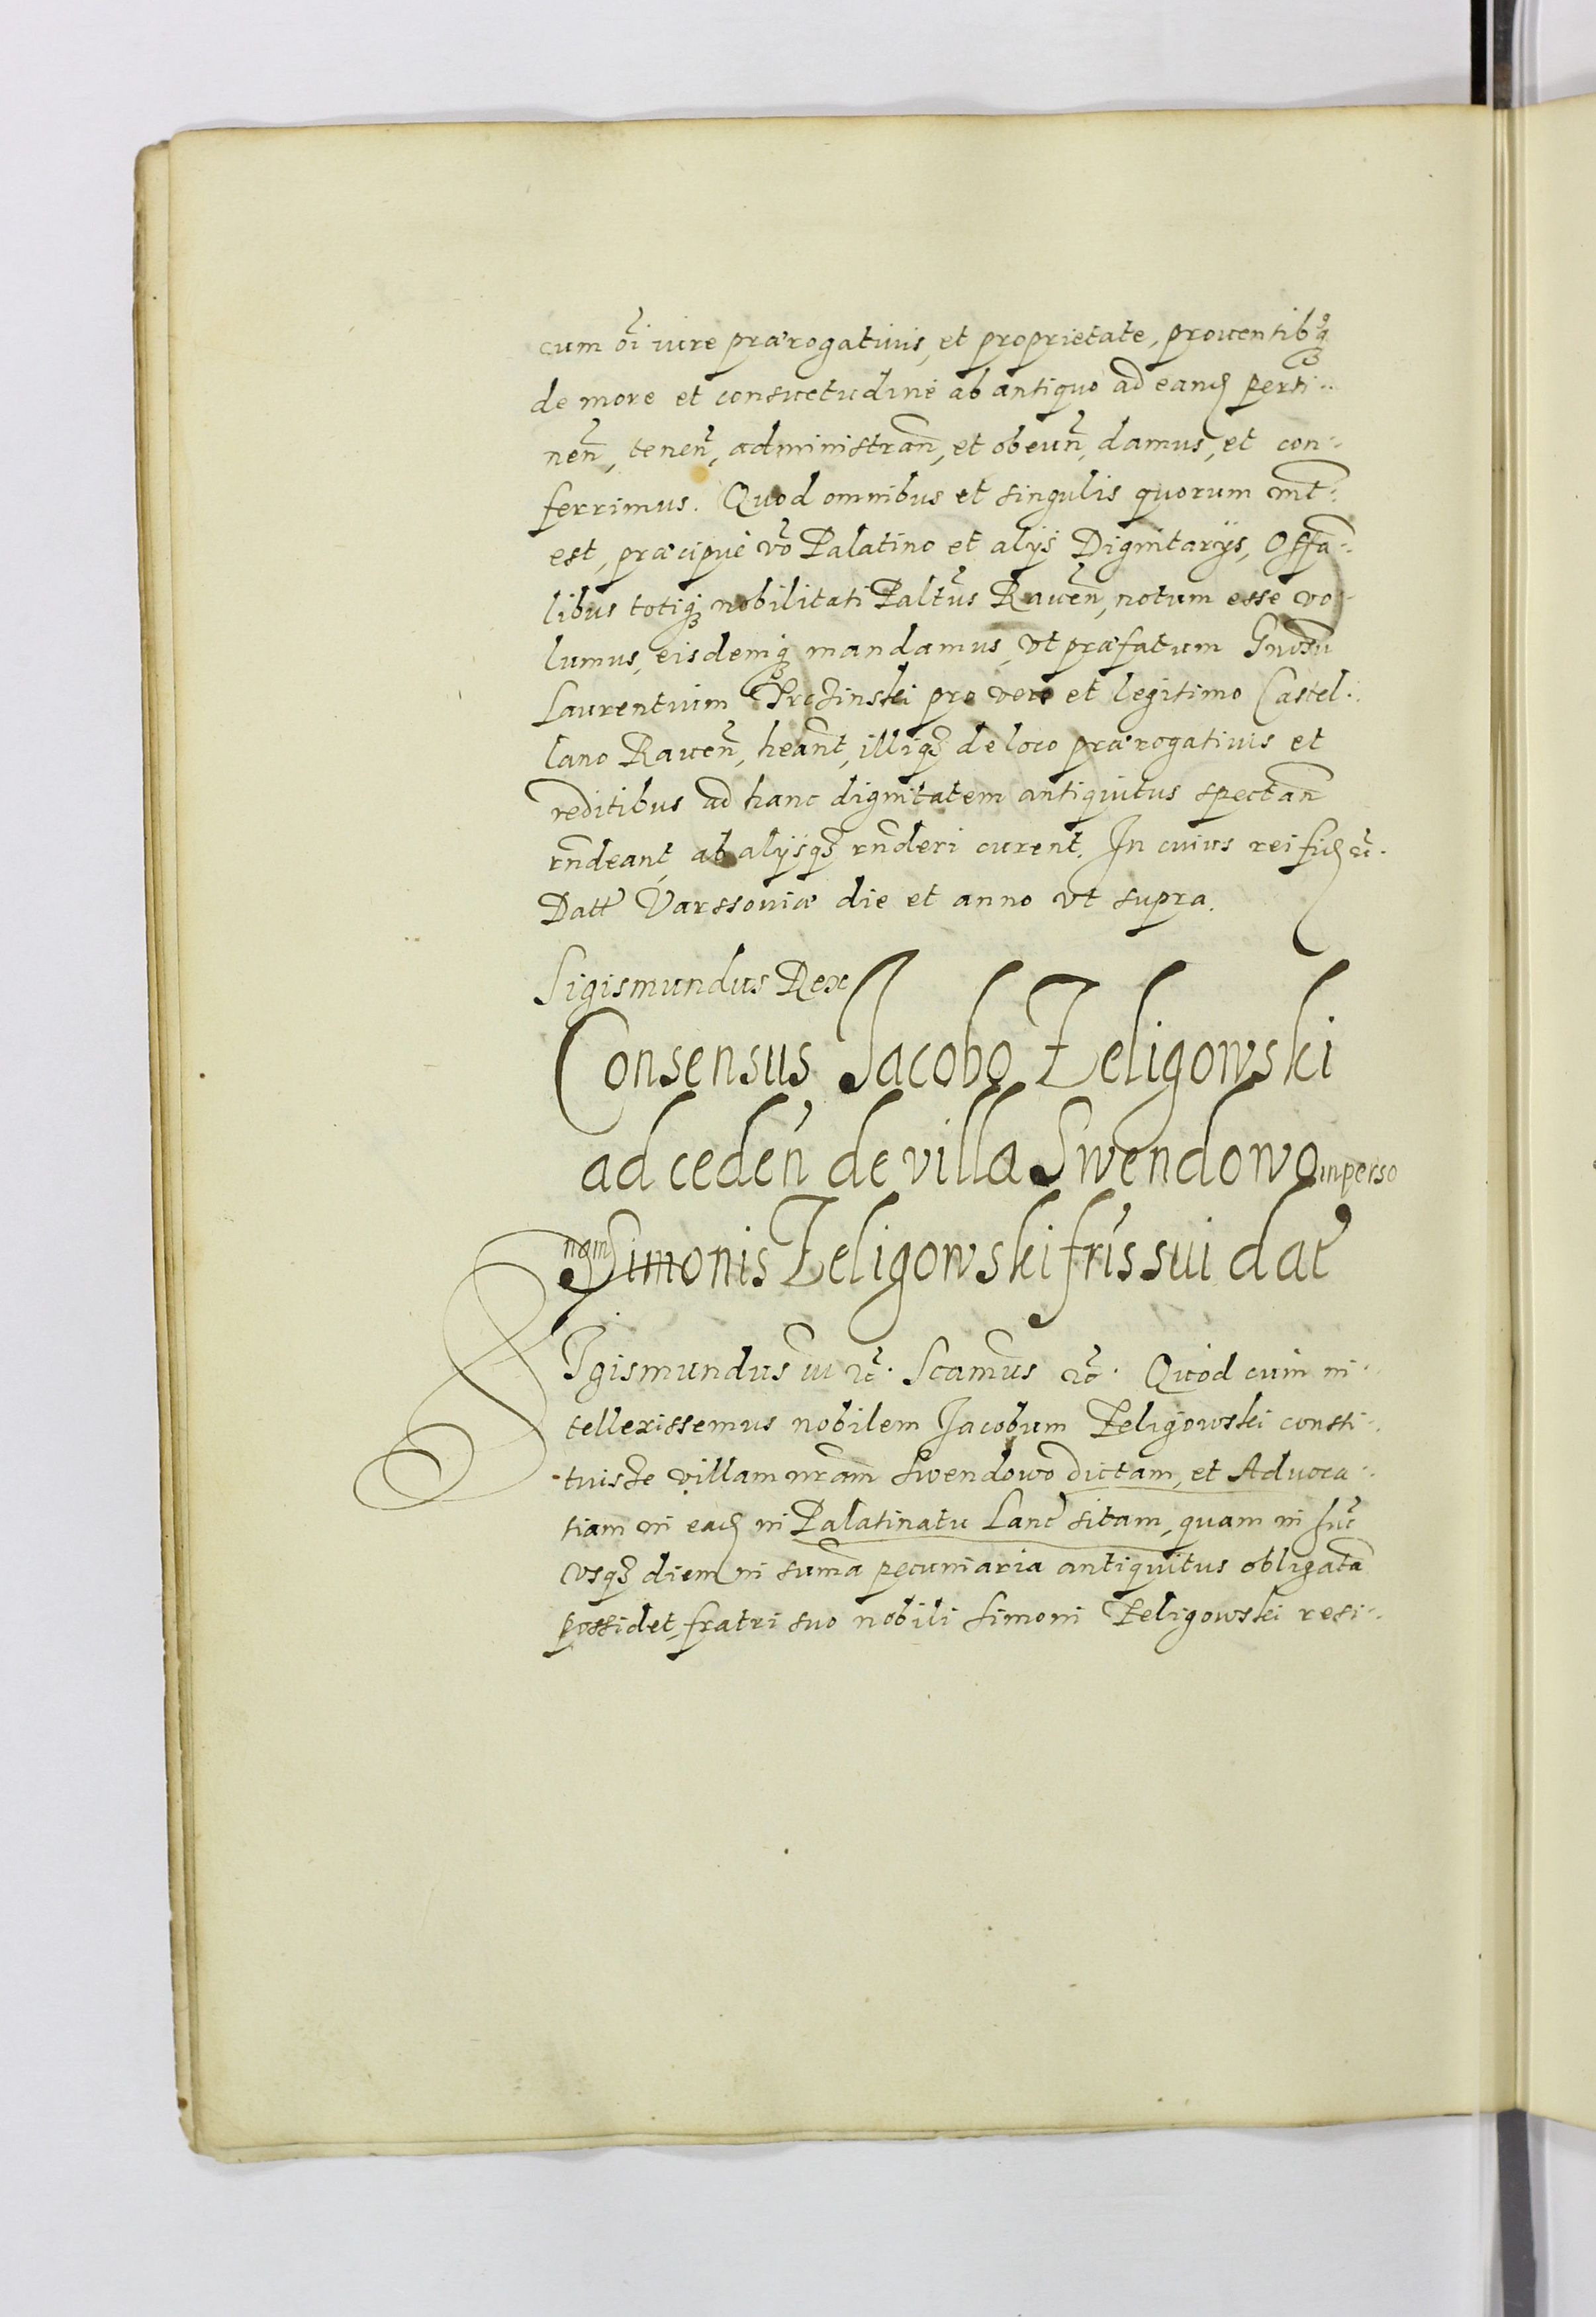 cum oĩ iure prærogativis, et proprietate, proventibꝰq̃
de more et consuetudine ab antiquo ad eand perti-
neñ, teneñ, administrañ, et obeuñ, damus, et con-
ferrimus. Quod omnibus et singulis quorum int̃:
est, præcipue võ Palatino et alijs Dignitarijs, Offã-
libus totiqꝫ nobilitati Paltũs Raveñ, notum esse vo-
lumus, eisdemqꝫ mandamus, vt præfatum Gnosũ
Laurentium pro vero et legitimo Castel-
lano Raveñ, heãnt, illiqꝫ de loco prærogativis et
reditibus ad hanc dignitatem antiquitus spectañ
rñdeant, ab alijsqꝫ rñderi curent. In cuius rei fid ꝛc̃.
Datt Varssoviæ die et anno vt supra.
Sigismundus Rex
Consensus Jacobo Zeligowski
ad cedeñ de villa Swendowo in perso
nam Simonis Zeligowski fr̃is sui dat̃
SIgismundus III ꝛc̃. Scamus ꝛc̃. Quod cum in-
tellexissemus nobilem Jacobum Zeligowski consti-
tuisse villam nr̃am Swendowo dictam, et Advoca-
tiam in ead in Palatinatu Lanc̃ sitam, quam in hũc
vsqꝫ diem in sum̃a pecuniaria antiquitus obligatã
possidet, fratri suo nobili Simoni Zeligowski resi-